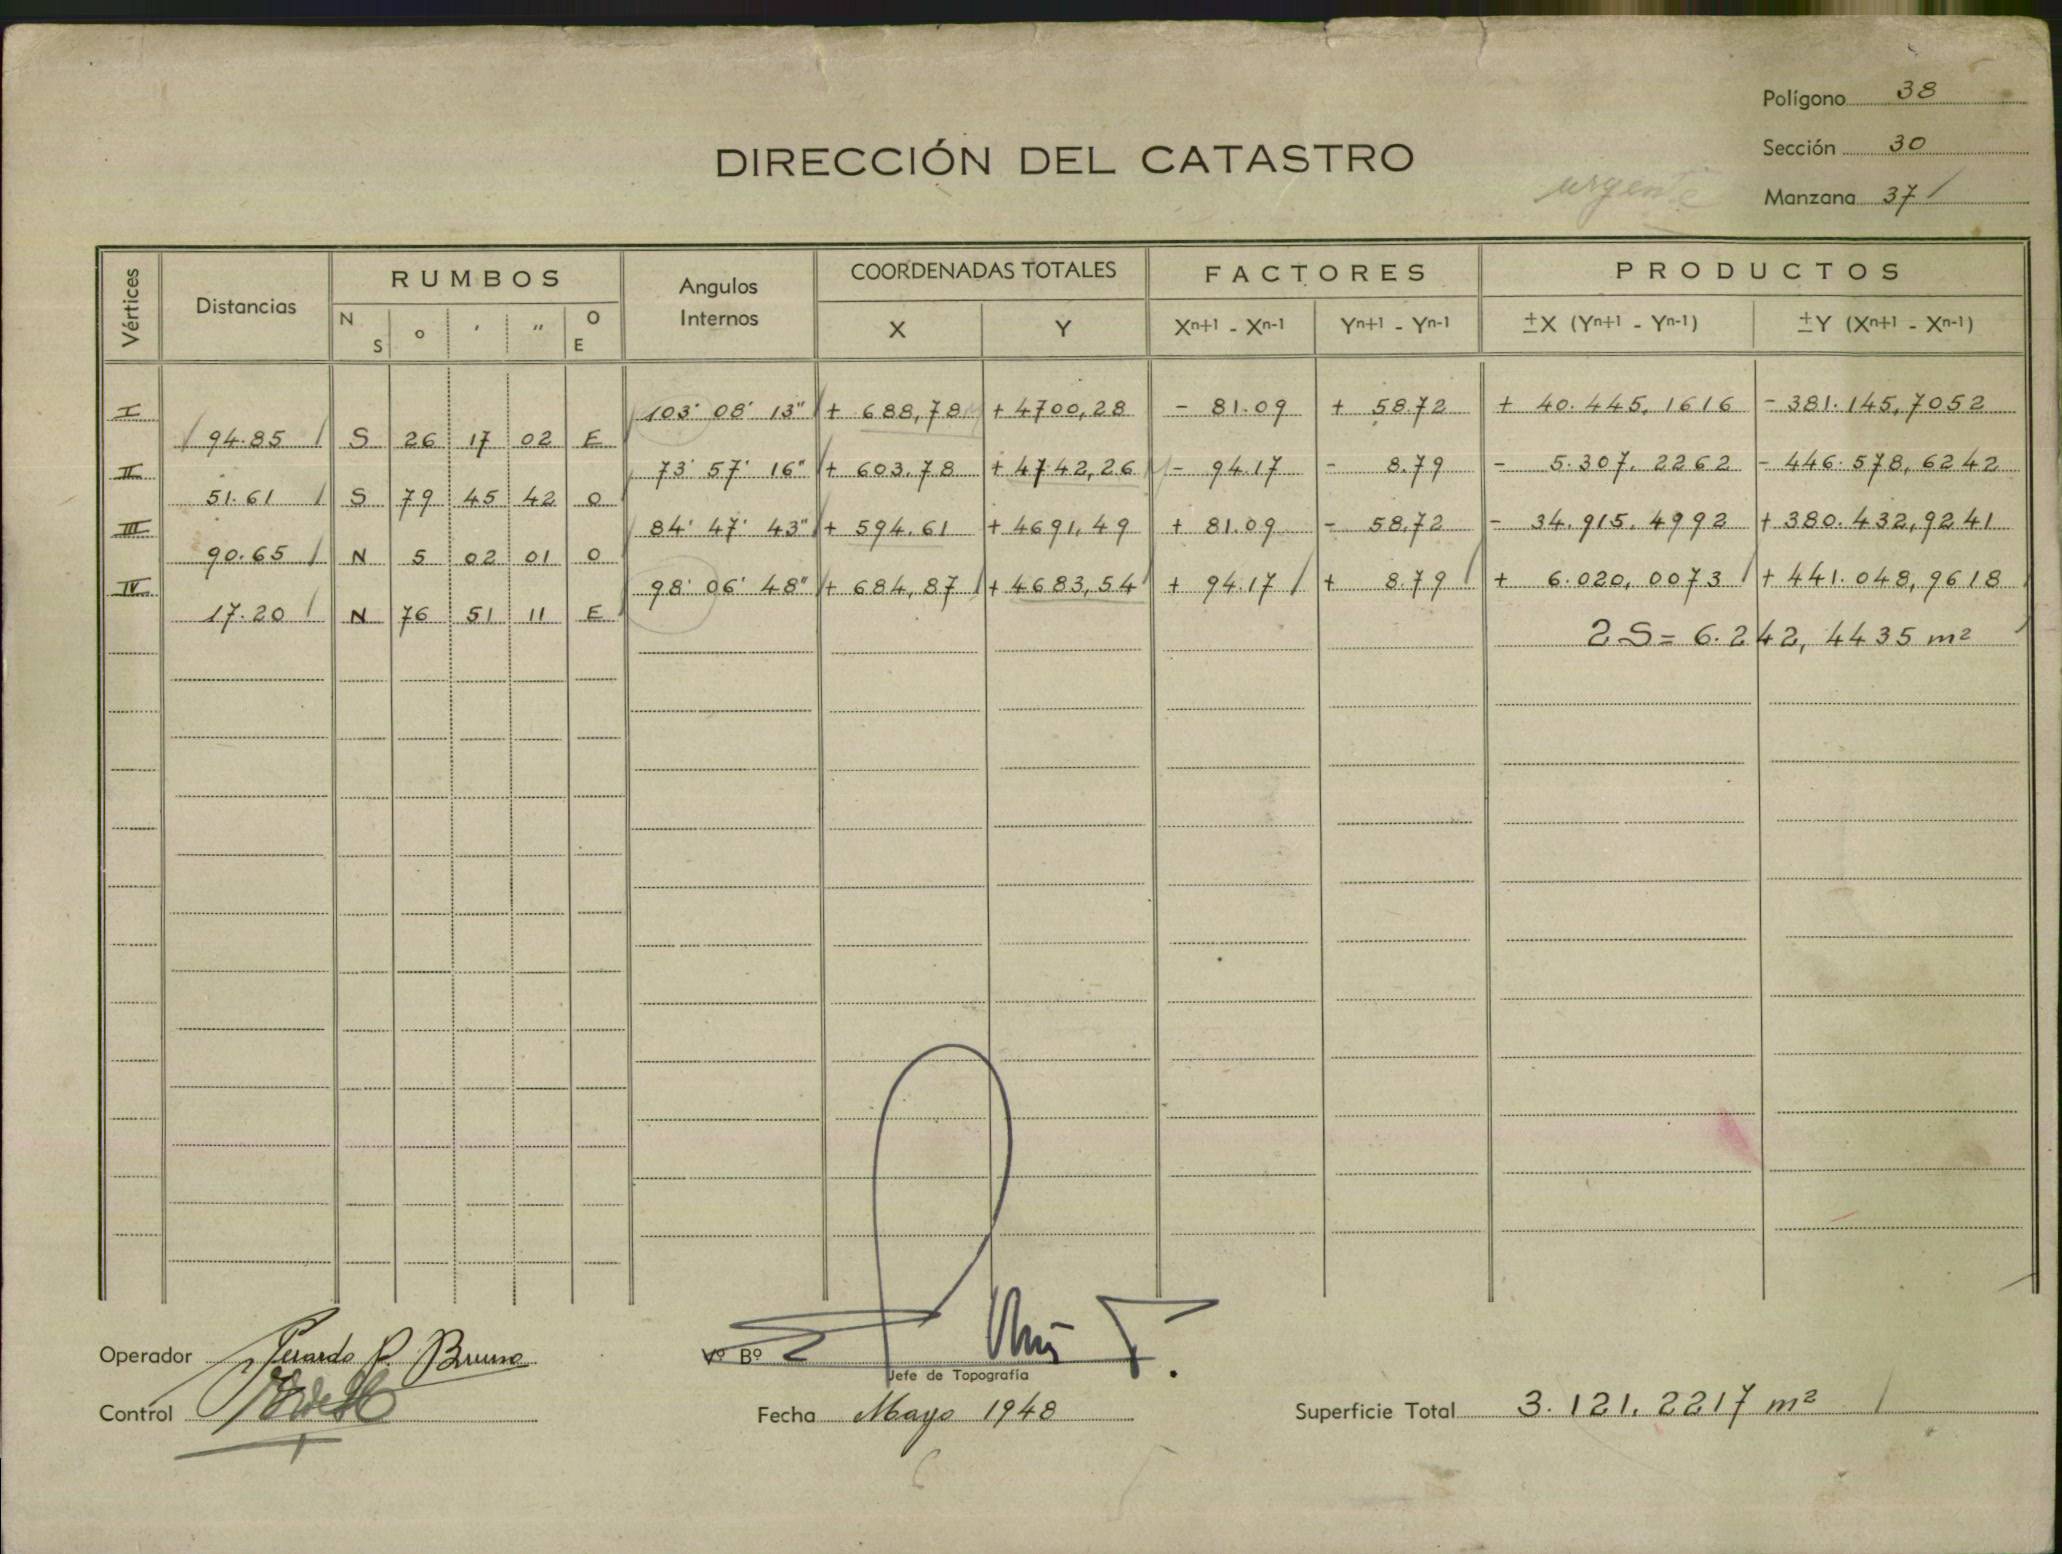 Polígono 38
Sección 30
DIRECCIÓN DEL CATASTRO
urgente
Manzana 37
Vértices Distancias RUMBOS Angulos Internos COORDENADAS TOTALES FACTORES PRODUCTOS
N S o ' " O E X Y Xn+1 - Xn-1 Yn+1 - Yn-1 ±X (Yn+1 - Yn-1) ±Y (Xn+1 - Xn-1)
I 103° 08' 13" + 688,78 + 4700,28 - 81.09 + 58.72 + 40.445,1616 - 381.145,7052
94.85 S 26 17 02 E
II 73° 57' 16" + 603.78 + 4742,26 - 94.17 - 8.79 - 5.307,2262 - 446.578,6242
51.61 S 79 45 42 O
III 84° 47' 43" + 594.61 + 4691,49 + 81.09 - 58,72 - 34.915,4992 + 380.432,9241
90.65 N 5 02 01 O
IV 98° 06' 48" + 684,87 + 4683,54 + 94.17 + 8.79 + 6.020,0073 + 441.048,9618
17.20 N 76 51 11 E
2S = 6.242,4435 m²
Operador Gerardo P. Bruno
Vº Bº
Jefe de Topografía
Control
Fecha Mayo 1948
Superficie Total 3.121.2217 m²